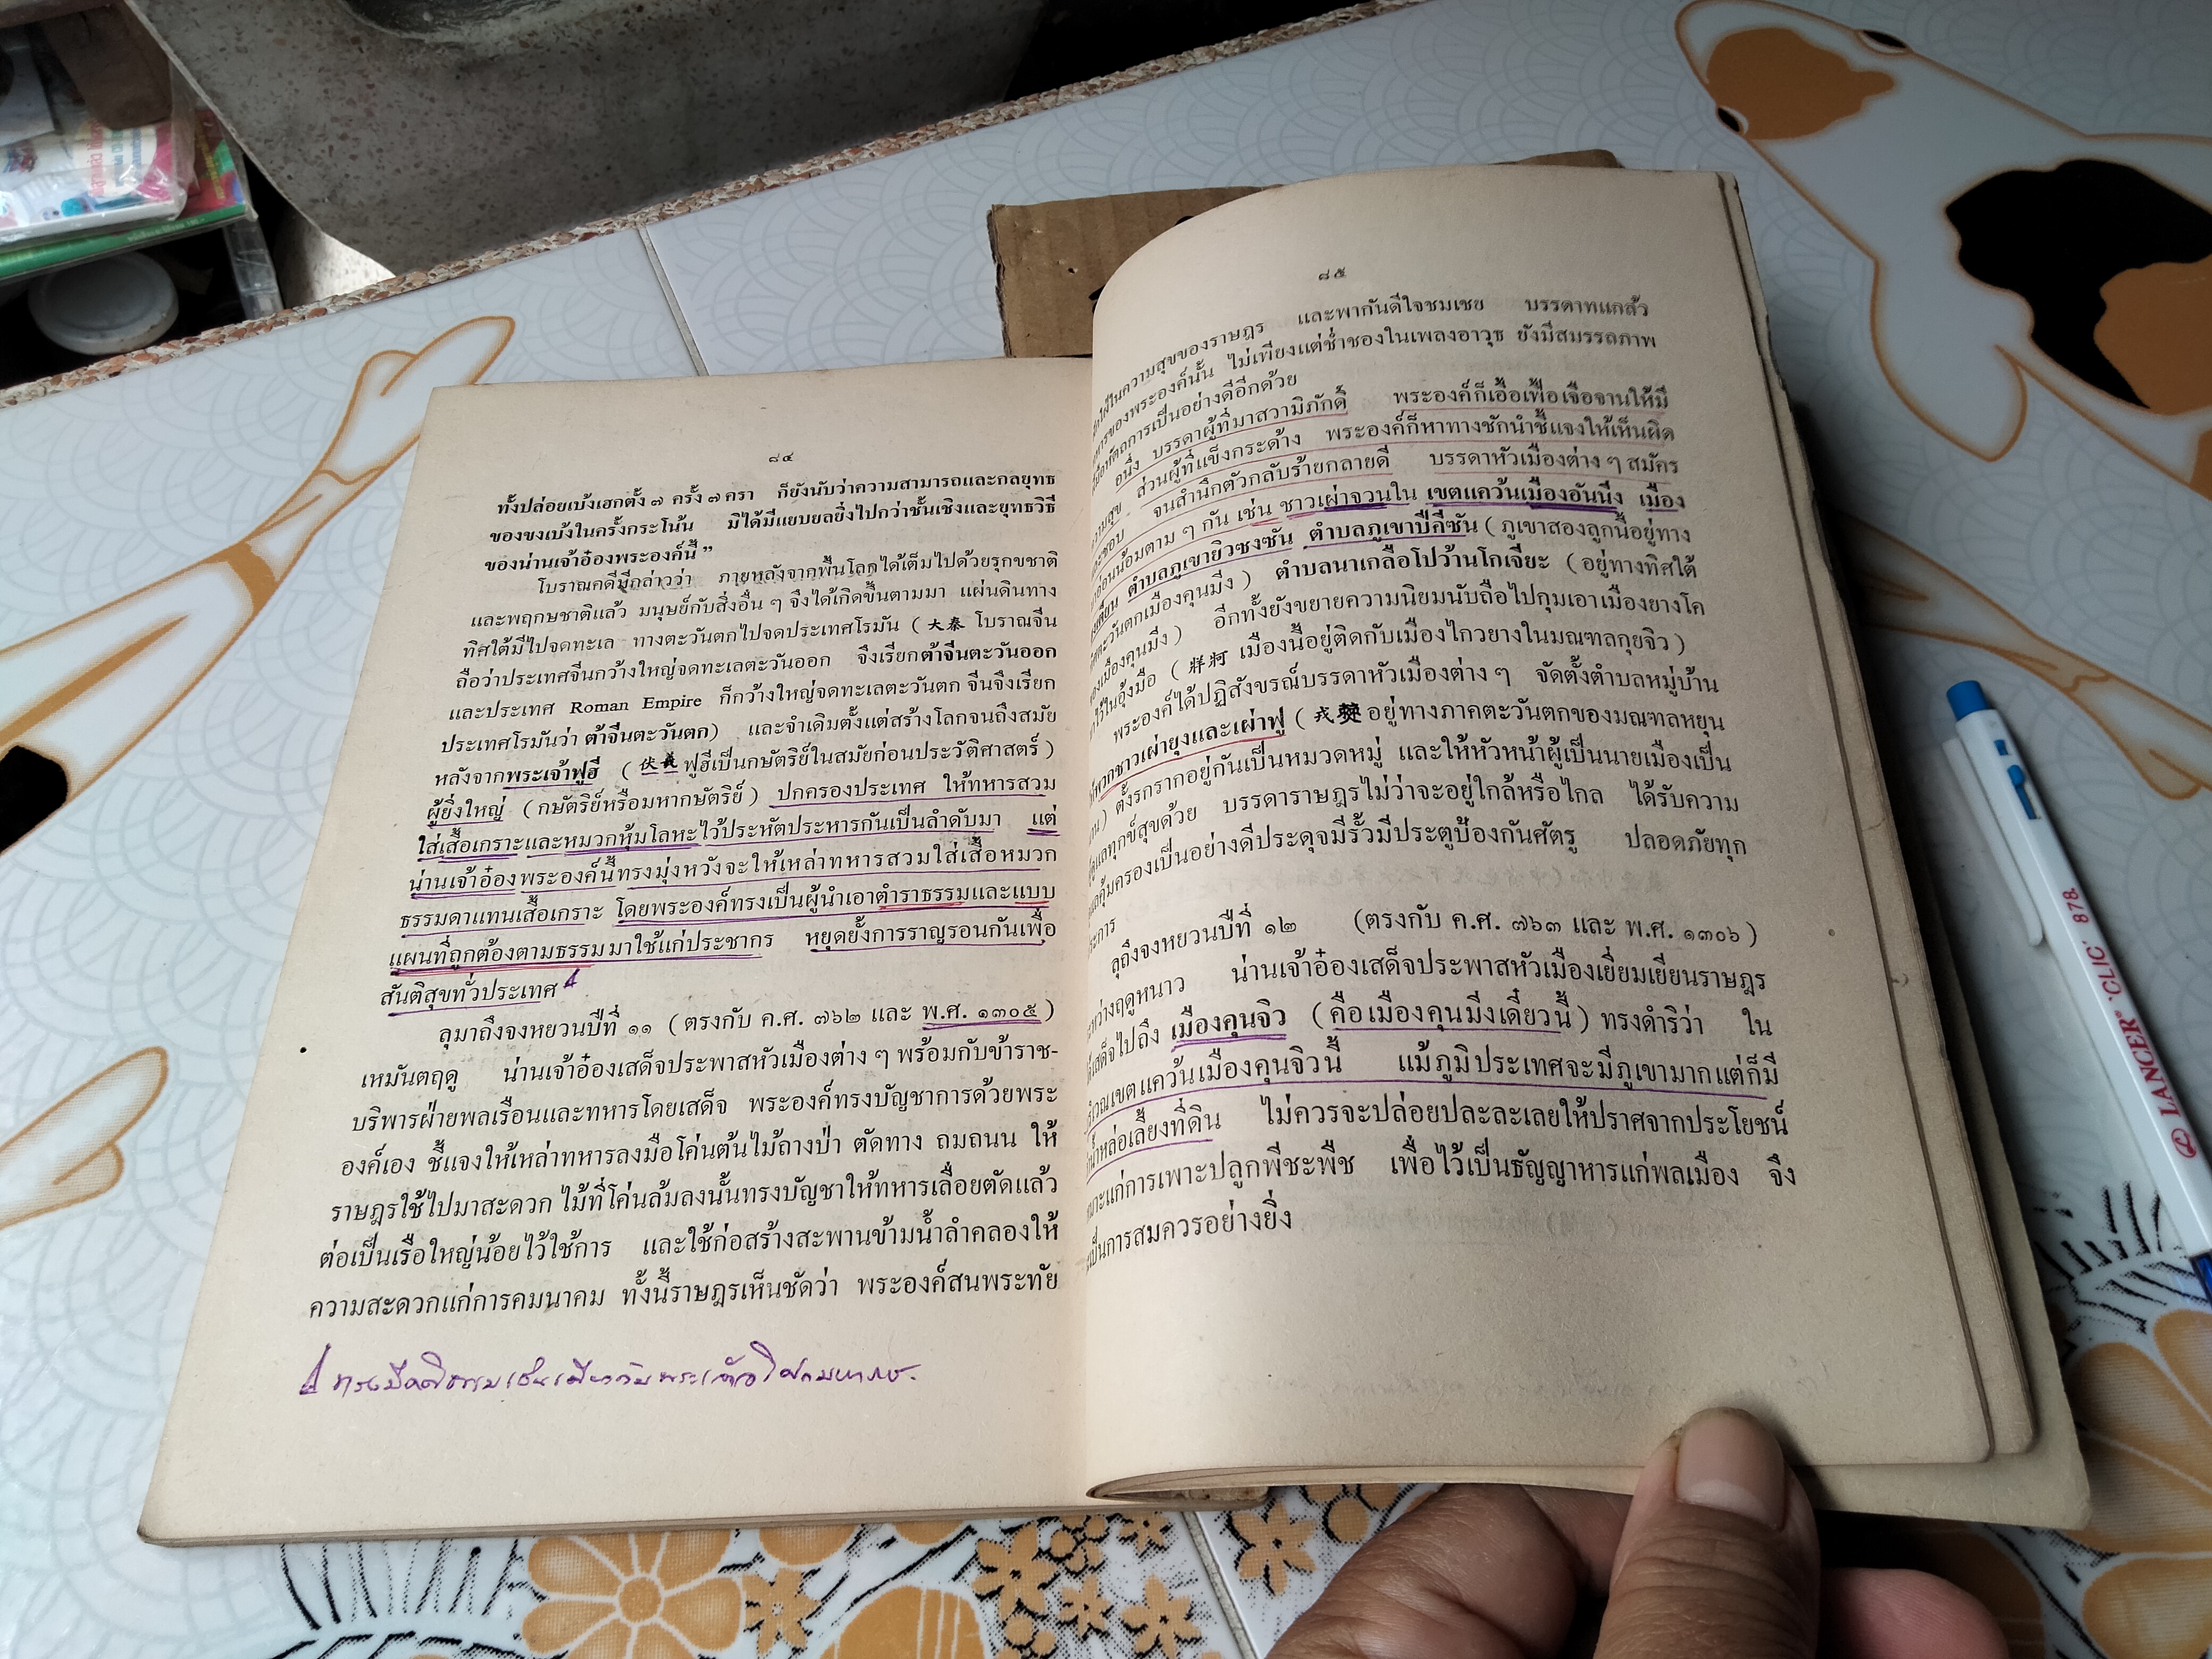 ๘๔
ทั้งปล่อยเบ้งเฮกตั้ง ๗ ครั้ง ๗ ครา ก็ยังนับว่าความสามารถและกลยุทธ
ของขงเบ้งในครั้งกระโน้น มิได้มีแยบยลยิ่งไปกว่าชั้นเชิงและยุทธวิธี
ของน่านเจ้าอ๋องพระองค์นี้ ”
โบราณคดีมีกล่าวว่า ภายหลังจากพื้นโลกได้เต็มไปด้วยรุกขชาติ
และพฤกษชาติแล้ว มนุษย์กับสิ่งอื่น ๆ จึงได้เกิดขึ้นตามมา แผ่นดินทาง
ทิศใต้มีไปจดทะเล ทางตะวันตกไปจดประเทศโรมัน ( 大秦 โบราณจีน
ถือว่าประเทศจีนกว้างใหญ่จดทะเลตะวันออก จึงเรียกต้าจีนตะวันออก
และประเทศ Roman Empire ก็กว้างใหญ่จดทะเลตะวันตก จีนจึงเรียก
ประเทศโรมันว่า ต้าจีนตะวันตก) และจำเดิมตั้งแต่สร้างโลกจนถึงสมัย
หลังจากพระเจ้าฟูฮี ( 伏羲 ฟูฮีเป็นกษัตริย์ในสมัยก่อนประวัติศาสตร์ )
ผู้ยิ่งใหญ่ ( กษัตริย์หรือมหากษัตริย์ ) ปกครองประเทศ ให้ทหารสวม
ใส่เสื้อเกราะและหมวกหุ้มโลหะไว้ประหัตประหารกันเป็นลำดับมา แต่
น่านเจ้าอ๋องพระองค์นี้ทรงมุ่งหวังจะให้เหล่าทหารสวมใส่เสื้อหมวก
ธรรมดาแทนเสื้อเกราะ โดยพระองค์ทรงเป็นผู้นำเอาตำราธรรมและแบบ
แผนที่ถูกต้องตามธรรมมาใช้แก่ประชากร หยุดยั้งการราญรอนกันเพื่อ
สันติสุขทั่วประเทศ
ลุมาถึงจงหยวนปีที่ ๑๑ ( ตรงกับ ค.ศ. ๗๖๒ และ พ.ศ. ๑๓๐๕ )
เหมันตฤดู น่านเจ้าอ๋องเสด็จประพาสหัวเมืองต่าง ๆ พร้อมกับข้าราช-
บริพารฝ่ายพลเรือนและทหารโดยเสด็จ พระองค์ทรงบัญชาการด้วยพระ
องค์เอง ชี้แจงให้เหล่าทหารลงมือโค่นต้นไม้ถางป่า ตัดทาง ถมถนน ให้
ราษฎรใช้ไปมาสะดวก ไม้ที่โค่นล้มลงนั้นทรงบัญชาให้ทหารเลื่อยตัดแล้ว
ต่อเป็นเรือใหญ่น้อยไว้ใช้การ และใช้ก่อสร้างสะพานข้ามน้ำลำคลองให้
ความสะดวกแก่การคมนาคม ทั้งนี้ราษฎรเห็นชัดว่า พระองค์สนพระทัย
๘๕
ใฝ่ในความสุขของราษฎร และพากันดีใจชมเชย บรรดาทแกล้ว
ทหารของพระองค์นั้น ไม่เพียงแต่ช่ำชองในเพลงอาวุธ ยังมีสมรรถภาพ
การเป็นอย่างดีอีกด้วย
อนึ่ง บรรดาผู้ที่มาสวามิภักดิ์ พระองค์ก็เอื้อเฟื้อเจือจานให้มี
ส่วนผู้ที่แข็งกระด้าง พระองค์ก็หาทางชักนำชี้แจงให้เห็นผิด
จนสำนึกตัวกลับร้ายกลายดี บรรดาหัวเมืองต่าง ๆ สมัคร
อ่อนน้อมตาม ๆ กัน เช่น ชาวเผ่าจวนใน เขตแคว้นเมืองอันนิ่ง เมือง
ตำบลภูเขายิวซงซัน ตำบลภูเขาปีคีซัน ( ภูเขาสองลูกนี้อยู่ทาง
ตะวันตกเมืองคุนมิ่ง ) ตำบลนาเกลือโปว้านโกเจียะ ( อยู่ทางทิศใต้
ของเมืองคุนมิ่ง ) อีกทั้งยังขยายความนิยมนับถือไปกุมเอาเมืองยางโค
ไว้ในอุ้งมือ ( 牂牁 เมืองนี้อยู่ติดกับเมืองไกวยางในมณฑลกุยจิว )
พระองค์ได้ปฏิสังขรณ์บรรดาหัวเมืองต่าง ๆ จัดตั้งตำบลหมู่บ้าน
พวกชาวเผ่ายุงและเผ่าฟู ( 戎僰 อยู่ทางภาคตะวันตกของมณฑลหยุน
) ตั้งรกรากอยู่กันเป็นหมวดหมู่ และให้หัวหน้าผู้เป็นนายเมืองเป็น
ดูแลทุกข์สุขด้วย บรรดาราษฎรไม่ว่าจะอยู่ใกล้หรือไกล ได้รับความ
คุ้มครองเป็นอย่างดีประดุจมีรั้วมีประตูป้องกันศัตรู ปลอดภัยทุก
ประการ
ลุถึงจงหยวนปีที่ ๑๒ (ตรงกับ ค.ศ. ๗๖๓ และ พ.ศ. ๑๓๐๖ )
ระหว่างฤดูหนาว น่านเจ้าอ๋องเสด็จประพาสหัวเมืองเยี่ยมเยียนราษฎร
ได้เสด็จไปถึง เมืองคุนจิว ( คือเมืองคุนมิ่งเดี๋ยวนี้ ) ทรงดำริว่า ใน
บริเวณเขตแคว้นเมืองคุนจิวนี้ แม้ภูมิประเทศจะมีภูเขามากแต่ก็มี
น้ำหล่อเลี้ยงที่ดิน ไม่ควรจะปล่อยปละละเลยให้ปราศจากประโยชน์
เหมาะแก่การเพาะปลูกพีชะพืช เพื่อไว้เป็นธัญญาหารแก่พลเมือง จึง
เป็นการสมควรอย่างยิ่ง
LANCER 'CLIC' 878